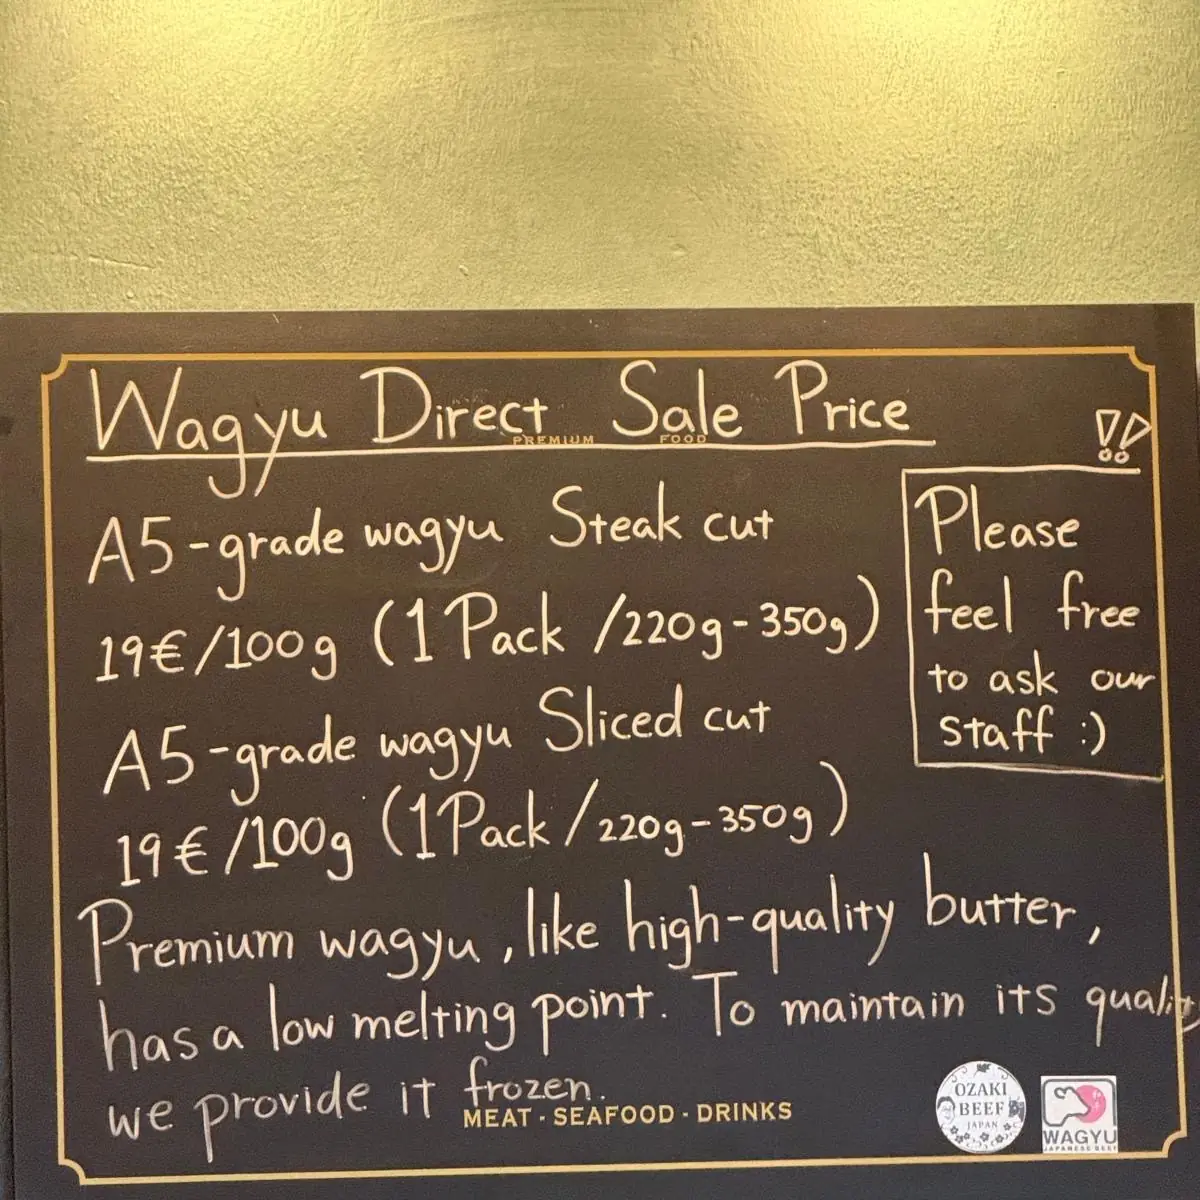 Wagyu Direct Sale Price
PREMIUM FOOD
!!
A5-grade wagyu Steak cut
19€/100g (1 Pack /220g-350g)
A5-grade wagyu Sliced cut
19€/100g (1 Pack/220g-350g)
Please
feel free
to ask our
staff :)
Premium wagyu, like high-quality butter,
has a low melting point. To maintain its quality
we provide it frozen.
MEAT · SEAFOOD · DRINKS
OZAKI
BEEF
JAPAN
WAGYU
JAPANESE BEEF